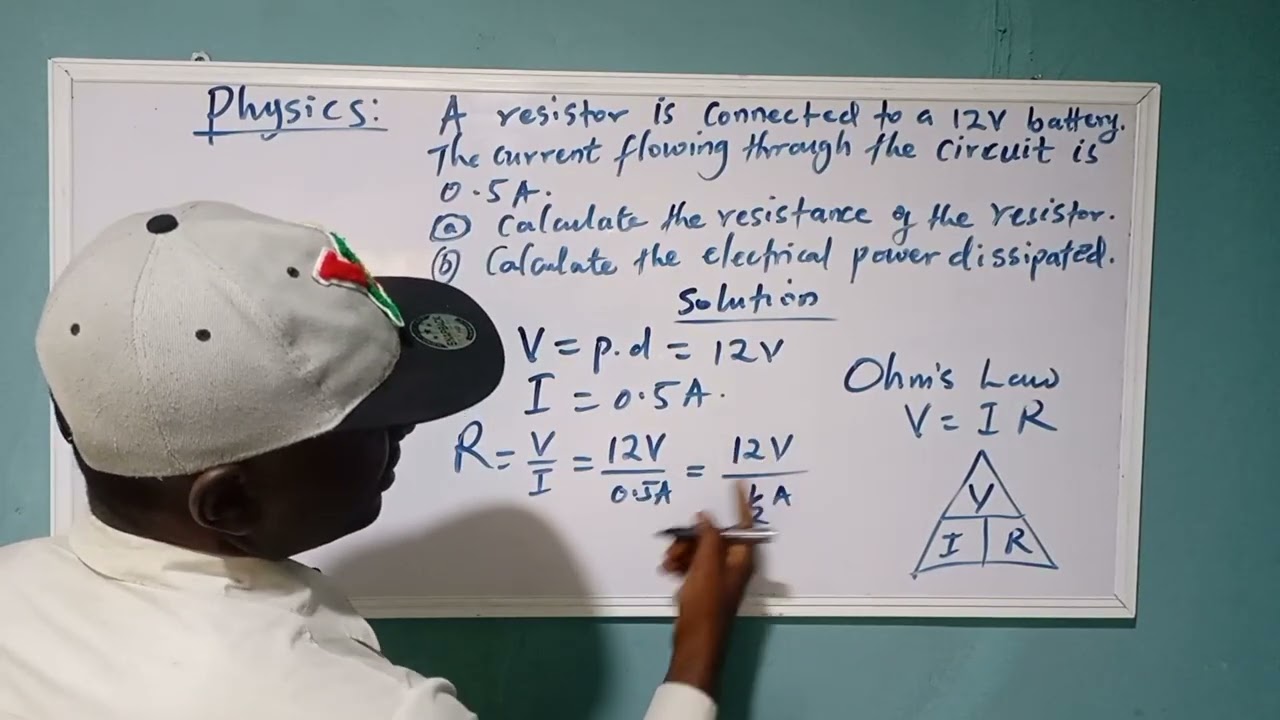 Physics:
A resistor is connected to a 12V battery.
The current flowing through the circuit is
0.5A.
(a) Calculate the resistance of the resistor.
(b) Calculate the electrical power dissipated.
Solution
V = p.d = 12V
I = 0.5A.
R = V/I = 12V/0.5A = 12V/½A
Ohm's Law
V = I R
V
I R